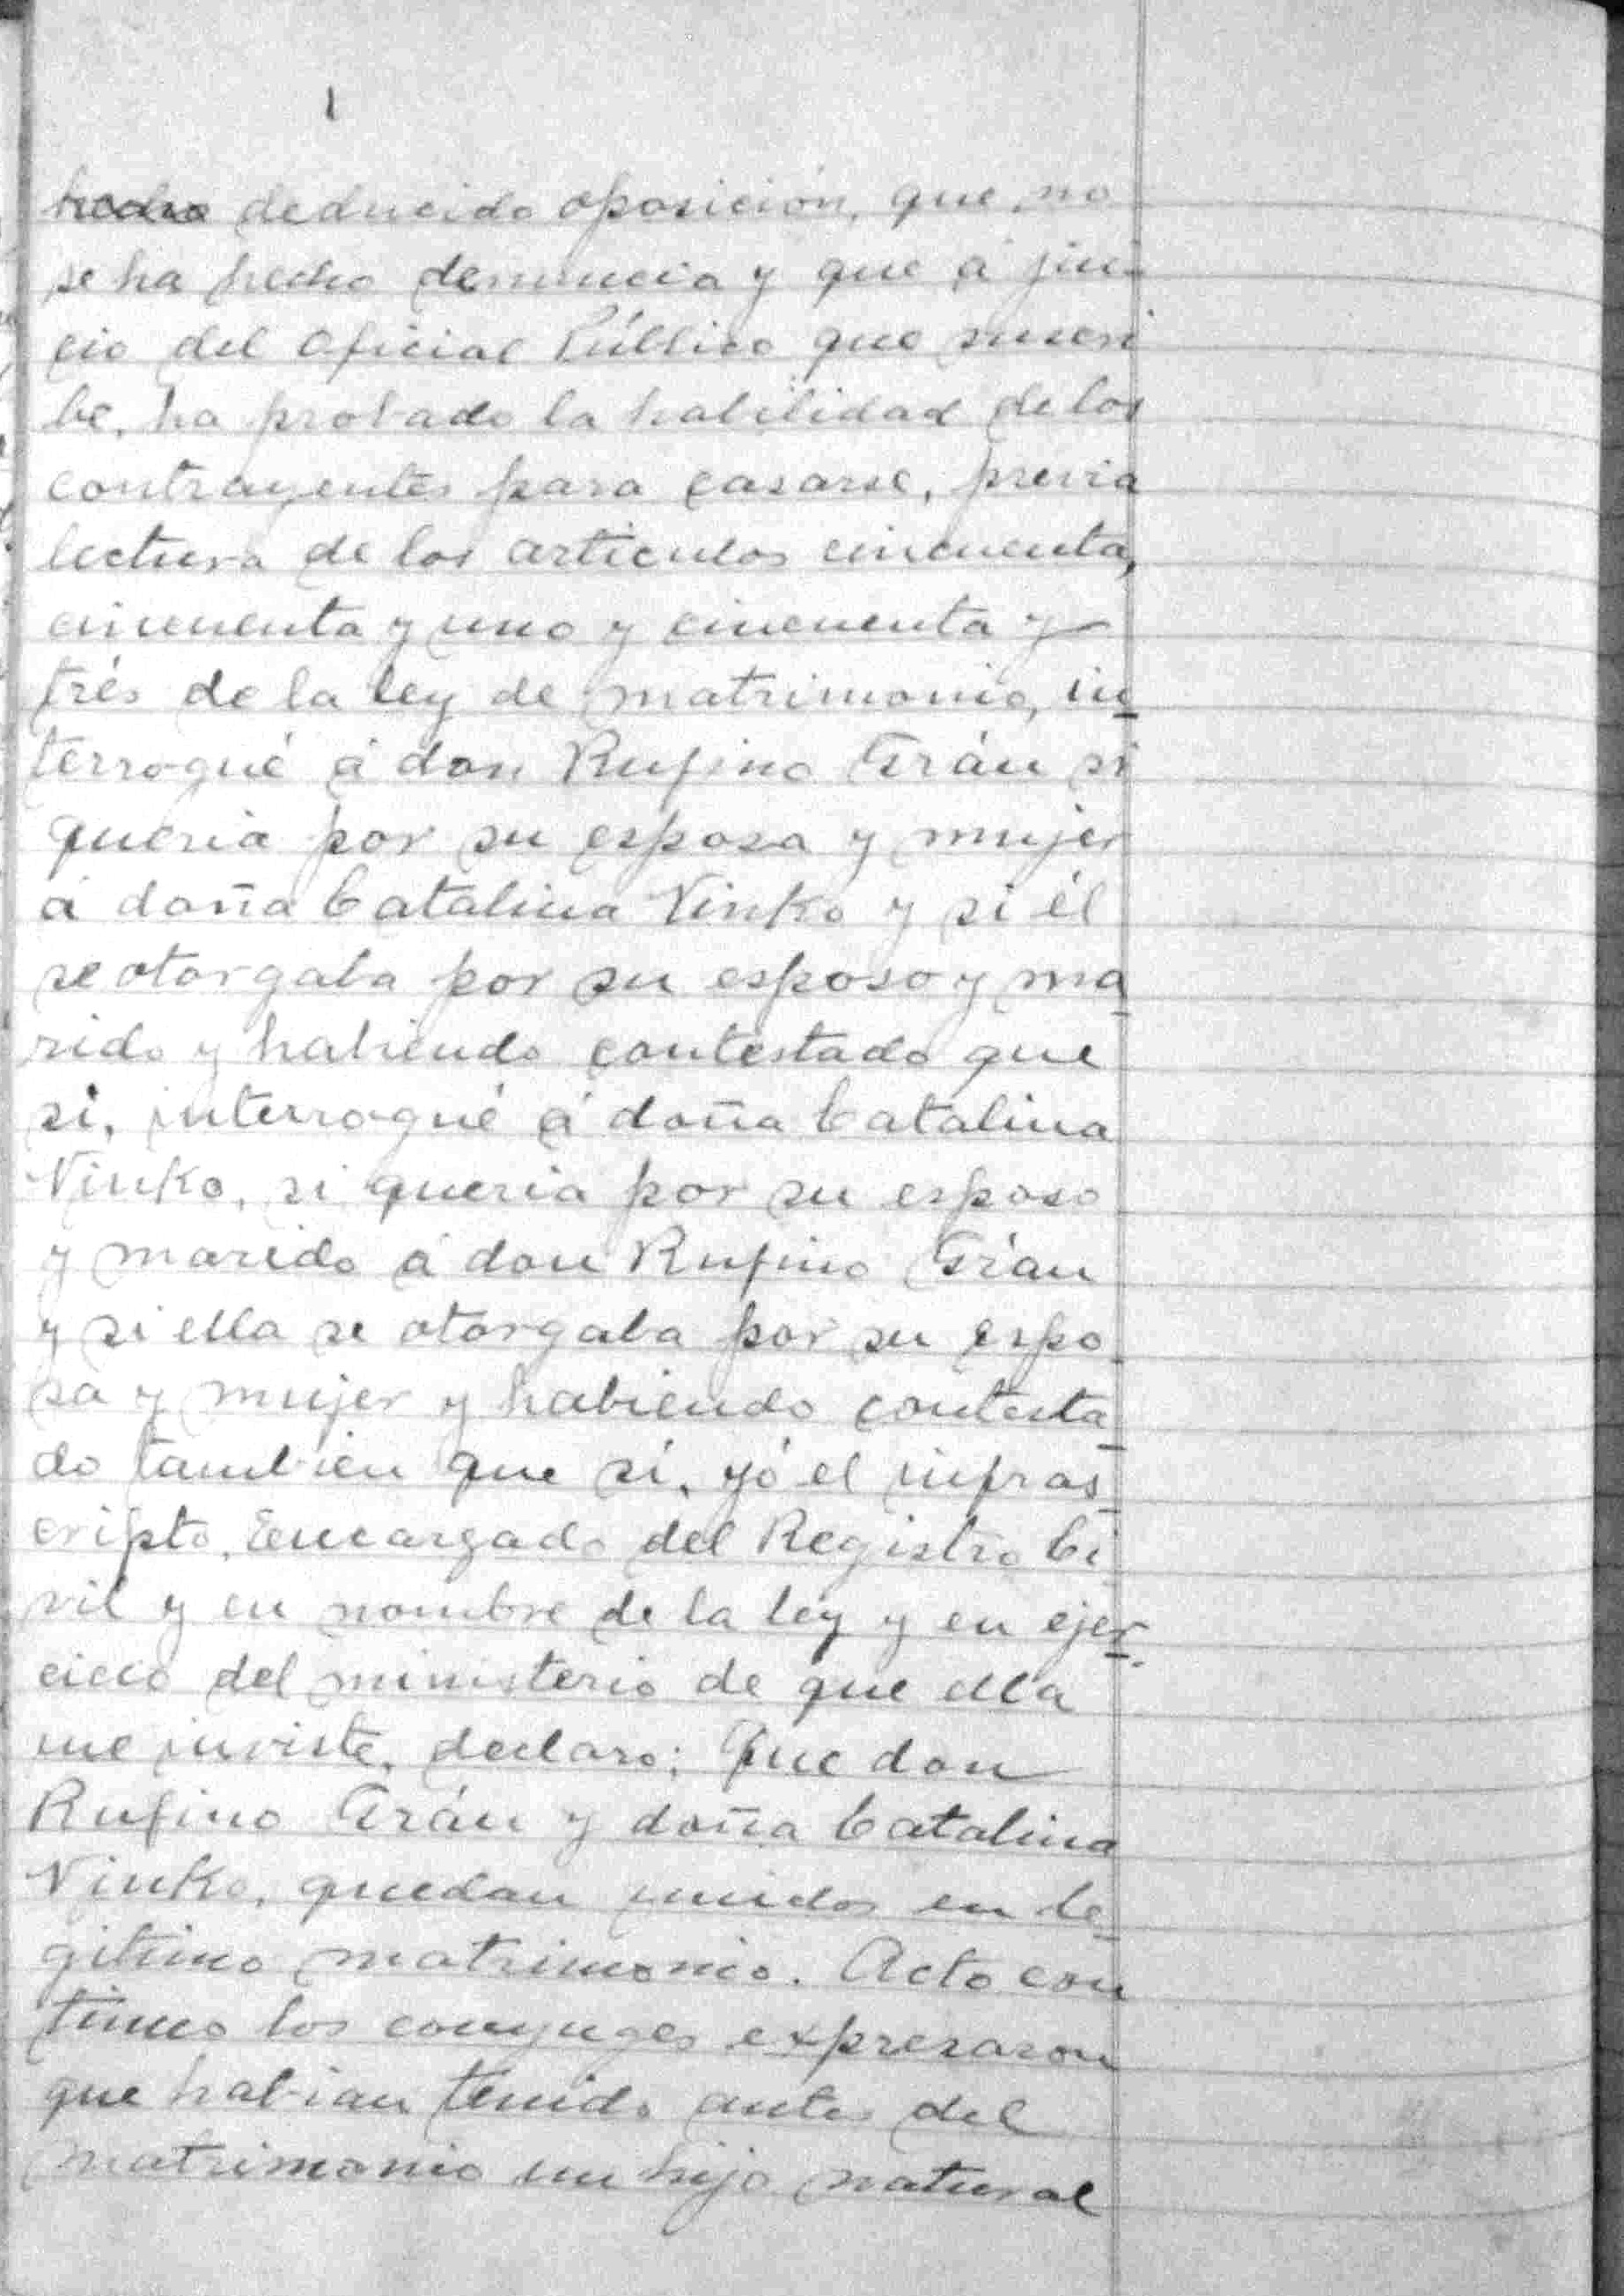 hecho deducido oposición, que no
se ha hecho denuncia y que á jui-
cio del Oficial Público que suscri
be, ha probado la habilidad de los
contrayentes para casarse, previa
lectura de los articulos cincuenta,
cincuenta y uno y cincuenta y
trés de la ley de matrimonio, in
terrogué á don Rufino Grán si
queria por su esposa y mujer
á doña Catalina Vinko y si él
se otorgaba por su esposo y ma
rido y habiendo contestado que
si, interrogué á doña Catalina
Vinko, si queria por su esposo
y marido á don Rufino Grán
y si ella se otorgaba por su espo
sa y mujer y habiendo contesta
do tambien que sí, yó el infras
cripto, Encargado del Registro Ci
vil y en nombre de la ley y en ejer
cicio del ministerio de que ella
me inviste, declaro; Que don
Rufino Grán y doña Catalina
Vinko, quedan unidos en le
gitimo matrimonio. Acto con
tinuo los conyuges expresaron
que habian tenido antes del
matrimonio un hijo natural